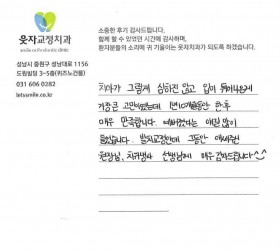 웃자교정치과
smile orthodontic clinic
성남시 중원구 성남대로 1156
드림빌딩 3-5층(퀴즈노건물)
031 606 0282
letssmile.co.kr
소중한 후기 감사드립니다.
함께 할 수 있었던 시간에 감사하며,
환자분들의 소리에 귀 기울이는 웃자치과가 되도록 하겠습니다.
치아가 그렇게 심하진 않고 입이 튀어나온게
가장큰 고민이였는데 1년10개월동안 한 후
매우 만족합니다. 예뻐졌다는 애길 많이
들었습니다. 발치교정인데 그동안 애써주신
원장님, 치위생사 선생님께 매우 감사드립니다